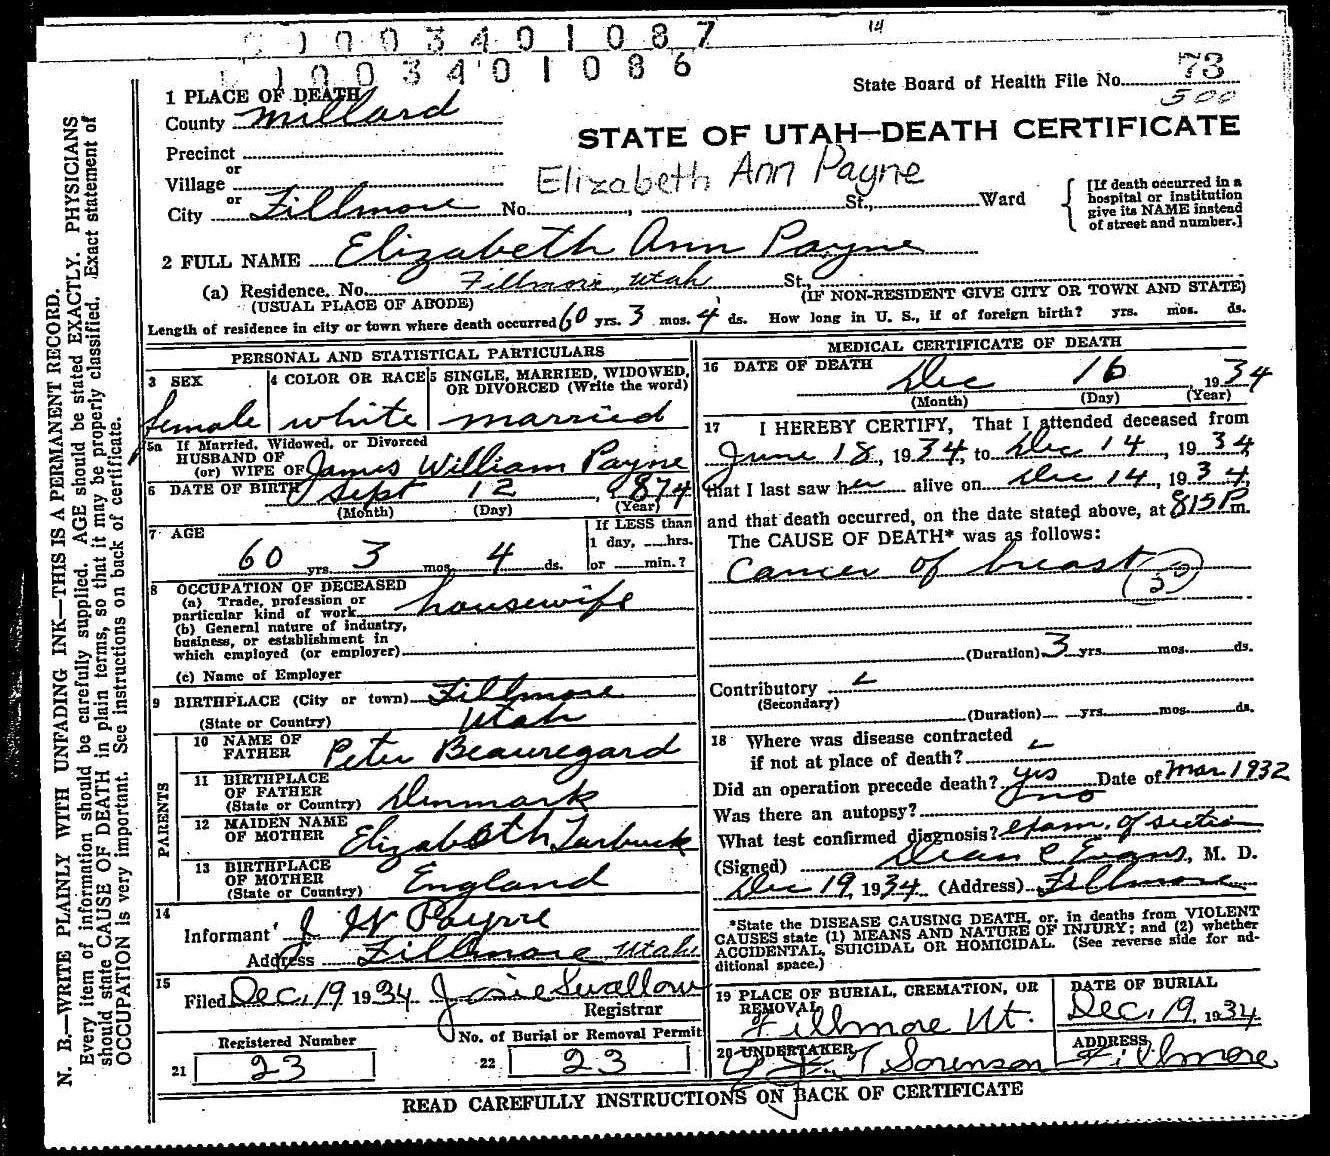 1003401087
14
1003401086
State Board of Health File No. 73
500
1 PLACE OF DEATH
County Millard
STATE OF UTAH—DEATH CERTIFICATE
Precinct
or
Village
Elizabeth Ann Payne
or
City Fillmore No. , St., Ward
[If death occurred in a
hospital or institution
give its NAME instead
of street and number.]
2 FULL NAME Elizabeth Ann Payne
(a) Residence. No. Fillmore, Utah St.,
(USUAL PLACE OF ABODE) (IF NON-RESIDENT GIVE CITY OR TOWN AND STATE)
Length of residence in city or town where death occurred 60 yrs. 3 mos. 4 ds. How long in U. S., if of foreign birth? yrs. mos. ds.
PERSONAL AND STATISTICAL PARTICULARS
3 SEX 4 COLOR OR RACE 5 SINGLE, MARRIED, WIDOWED,
OR DIVORCED (Write the word)
female white married
5a If Married, Widowed, or Divorced
HUSBAND OF
(or) WIFE OF James William Payne
6 DATE OF BIRTH Sept 12, 1874
(Month) (Day) (Year)
7 AGE If LESS than
1 day, hrs.
60 yrs. 3 mos. 4 ds. or min.?
8 OCCUPATION OF DECEASED
(a) Trade, profession or
particular kind of work housewife
(b) General nature of industry,
business, or establishment in
which employed (or employer)
(c) Name of Employer
9 BIRTHPLACE (City or town) Fillmore
(State or Country) Utah
PARENTS
10 NAME OF
FATHER Peter Beauregard
11 BIRTHPLACE
OF FATHER
(State or Country) Denmark
12 MAIDEN NAME
OF MOTHER Elizabeth Tarbuck
13 BIRTHPLACE
OF MOTHER
(State or Country) England
14
Informant J W Payne
Address Fillmore Utah
15
Filed Dec. 19 1934 Josie Swallow
Registrar
Registered Number No. of Burial or Removal Permit
21 23 22 23
MEDICAL CERTIFICATE OF DEATH
16 DATE OF DEATH
Dec 16, 1934
(Month) (Day) (Year)
17 I HEREBY CERTIFY, That I attended deceased from
June 18, 1934, to Dec 14, 1934,
that I last saw her alive on Dec 14, 1934,
and that death occurred, on the date stated above, at 815 P m.
The CAUSE OF DEATH* was as follows:
Cancer of breast 50
(Duration) 3 yrs. mos. ds.
Contributory
(Secondary)
(Duration) yrs. mos. ds.
18 Where was disease contracted
if not at place of death?
Did an operation precede death? yes Date of Mar 1932
Was there an autopsy? no
What test confirmed diagnosis? exam. of section
(Signed) Dean C Evans, M. D.
Dec 19, 1934 (Address) Fillmore
*State the DISEASE CAUSING DEATH, or, in deaths from VIOLENT
CAUSES state (1) MEANS AND NATURE OF INJURY; and (2) whether
ACCIDENTAL, SUICIDAL OR HOMICIDAL. (See reverse side for ad-
ditional space.)
19 PLACE OF BURIAL, CREMATION, OR
REMOVAL
Fillmore Ut.
DATE OF BURIAL
Dec. 19, 1934
20 UNDERTAKER
T Sorenson
ADDRESS
Fillmore
READ CAREFULLY INSTRUCTIONS ON BACK OF CERTIFICATE
N. B.—WRITE PLAINLY WITH UNFADING INK—THIS IS A PERMANENT RECORD.
Every item of information should be carefully supplied. AGE should be stated EXACTLY. PHYSICIANS
should state CAUSE OF DEATH in plain terms, so that it may be properly classified. Exact statement of
OCCUPATION is very important. See instructions on back of certificate.